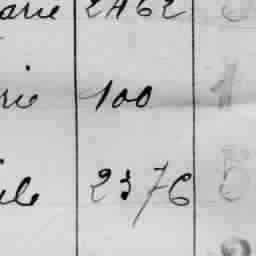 arie 2462
rie 100
ile 2376